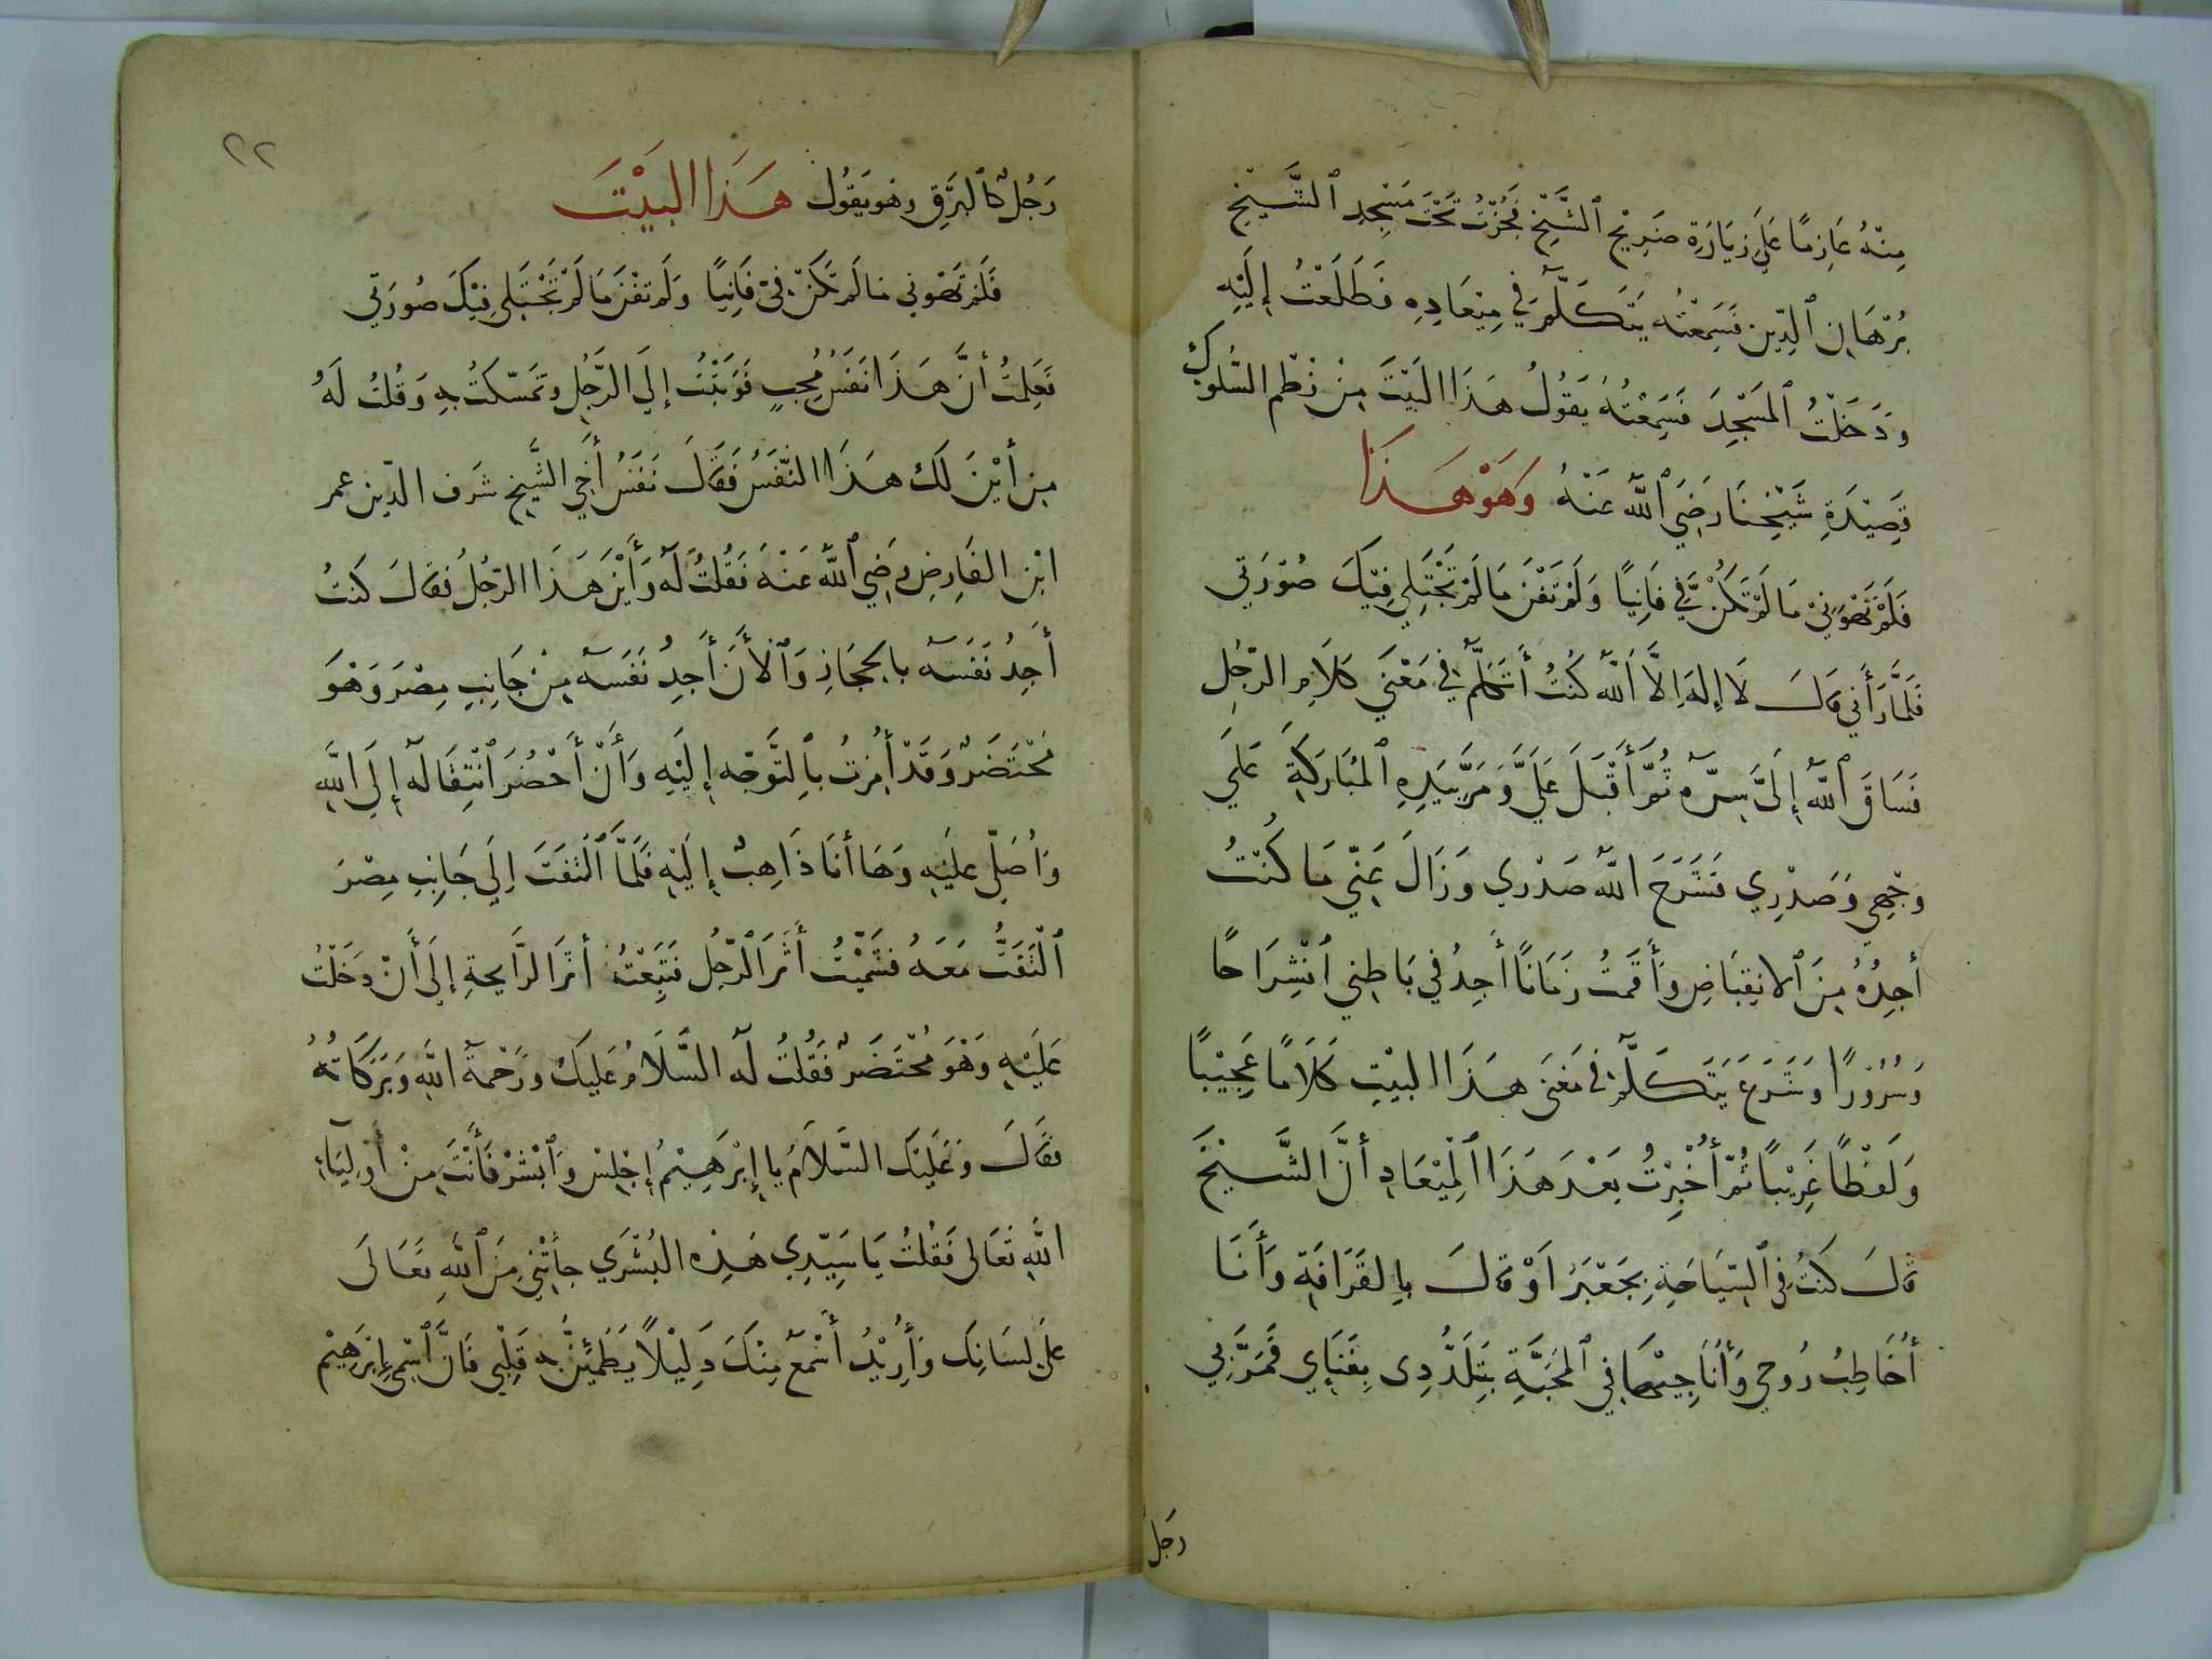 مِنْهُ عَازِمًا عَلَي زِيَارَةِ ضَرِيْحِ ٱلشَّيْخِ فَجُزْتُ تَحْتَ مَسْجِدِ ٱلشَّيْخِ
بُرْهَانِ ٱلدِّينِ فَسَمِعْتُهُ يَتَكَلَّمُ فِي مِيْعَادِهِ فَطَلَعْتُ إِلَيْهِ
وَدَخَلْتُ ٱلمَسْجِدَ فَسَمِعْتُهُ يَقُولُ هَذَا البَيْتَ مِنْ نَظْمِ السُّلُوكِ
قَصِيْدَةِ شَيْخِنَا رَضِيَ ٱللَّهُ عَنْهُ وَهُوَ هَذَا
فَلَمْ تَهْوَنِيْ مَا لَمْ تَكُنْ فِيَّ فَانِيًا وَلَمْ تَفْنَ مَا لَمْ تَجْتَلِي فِيْكَ صُوْرَتِي
فَلَمَّا رَأَنِي قَالَ لَا إِلَهَ إِلَّا ٱللَّهُ كُنْتُ أَتَكَلَّمُ فِي مَعْنَي كَلَامِ الرَّجُلِ
فَسَاقَ ٱللَّهُ إِلَيَّ سِرَّهُ ثُمَّ أَقْبَلَ عَلَيَّ وَمَرَّ بِيَدِهِ ٱلمُبَارَكَةِ عَلَي
وَجْهِي وَصَدْرِي فَشَرَحَ اللَّهُ صَدْرِي وَزَالَ عَنِّي مَا كُنْتُ
أَجِدُهُ مِنَ ٱلانْقِبَاضِ وَأَقَمْتُ زَمَانًا أَجِدُ فِي بَاطِنِي ٱنْشِرَاحًا
وَسُرُوْرًا وَشَرَعَ يَتَكَلَّمُ فِي مَعْنَى هَذَا البَيْتِ كَلَامًا عَجِيْبًا
وَلَفْظًا غَرِيْبًا ثُمَّ أُخْبِرْتُ بَعْدَ هَذَا ٱلمِيْعَادِ أَنَّ الشَّيْخَ
قَالَ كُنْتُ فِي ٱلسِّيَاحَةِ بِجَعْبَرَ اَوْ قَالَ بِالقَرَافَةِ وَأَنَا
أُخَاطِبُ رُوحِي وَأُنَاجِيْهَا فِي ٱلمَحَبَّةِ بِتَلَذُّذِي بِفَنَاي فَمَرَّ بِي
رَجُل
٢٢
رَجُلٌ كَٱلبَرْقِ وَهُوَ يَقُوْلُ هَذَا البَيْتَ
فَلَمْ تَهْوَنِي مَا لَمْ تَكُنْ فِيَّ فَانِيًا وَلَمْ تَفْنَ مَا لَمْ تَجْتَلِي فِيْكَ صُورَتِي
فَعَلِمْتُ أَنَّ هَذَا نَفَسُ مُحِبٍ فَوَثَبْتُ إِلَي الرَّجُلِ وَتَمَسَّكْتُ بِهِ وَقُلْتُ لَهُ
مِنْ أَيْنَ لَكَ هَذَا النَّفَسُ فَقَالَ نَفَسُ أَخِي الشَّيْخِ شَرَفِ الدِّينِ عمر
ابْنِ الفَارِضِ رَضِيَ ٱللَّهُ عَنْهُ فَقُلْتُ لَهُ وَأَيْنَ هَذَا الرَّجُلُ فَقَالَ كُنْتُ
أَجِدُ نَفَسَهُ بِالحِجَازِ وَٱلأَنَ أَجِدُ نَفَسَهُ مِنْ جَانِبِ مِصْرَ وَهْوَ
مُحْتَضَرٌ وَقَدْ أُمِرْتُ بِٱلتَّوَجُّهِ إِلَيْهِ وَأَنْ أَحْضُرَ ٱنْتِقَالَهُ إِلَي اللَّهِ
وَاُصَلِّي عَلَيْهِ وَهَا أَنَا ذَاهِبٌ إِلَيْهِ فَلَمَّا ٱلْتَفَتَ اِلَي جَانِبِ مِصْرَ
ٱلْتَفَتُّ مَعَهُ فَشَمَيْتُ أَثَرَ ٱلرَّجُلِ فَتَبِعْتُ أَثَرَ الرَّايِحَةِ إِلَي أَنْ دَخَلْتُ
عَلَيْهِ وَهْوَ مُحْتَضَرٌ فَقُلْتُ لَهُ السَّلَامُ عَلَيْكَ وَرَحْمَةُ اللَّهِ وَبَرَكَاتُهُ
فَقَالَ وَعَلَيْكَ السَّلَامُ يَا إِبْرَهِيْمُ إِجْلِسْ وَٱبْشِرْ فَأَنْتَ مِنْ أَوْلِيَآءِ
اللَّهِ تَعَالَى فَقُلْتُ يَا سَيِّدِي هَذِهِ البُشْرَي جَاءَتْنِي مِنَ ٱللَّهِ تَعَالَى
عَلَى لِسَانِكَ وَأُرِيْدُ أَسْمَعُ مِنْكَ دَلِيْلًا يَطْمَئِنُّ بِهِ قَلْبِي فَاِنَّ ٱسْمِي إِبْرَهِيْم